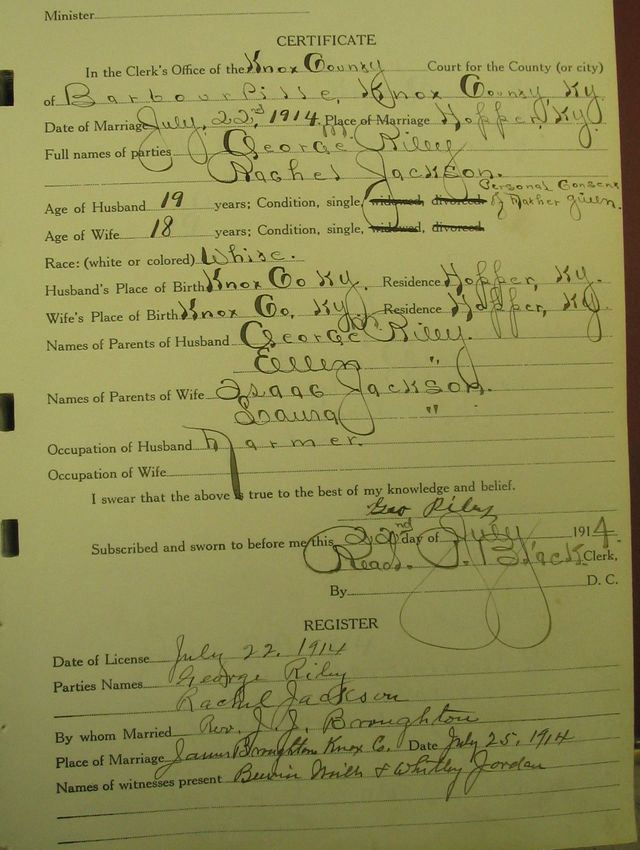 Minister
CERTIFICATE
In the Clerk's Office of the Knox County Court for the County (or city)
of Barbourville, Knox County Ky.
Date of Marriage July, 22nd, 1914. Place of Marriage Hopper, Ky.
Full names of parties George M. Riley
Rachel Jackson.
Personal Consent
Age of Husband 19 years; Condition, single, widowed, divorced of Mother given.
Age of Wife 18 years; Condition, single, widowed, divorced
Race: (white or colored) White.
Husband's Place of Birth Knox Co Ky. Residence Hopper, Ky.
Wife's Place of Birth Knox Co, Ky. Residence Hopper, Ky
Names of Parents of Husband George Riley.
Ellen "
Names of Parents of Wife Isaac Jackson.
Laura "
Occupation of Husband Farmer.
Occupation of Wife
I swear that the above is true to the best of my knowledge and belief.
Geo Riley
Subscribed and sworn to before me this 22nd day of July 1914.
Read P. Black Clerk,
By D. C.
REGISTER
Date of License July 22, 1914
Parties Names George Riley
Rachel Jackson
By whom Married Rev. J. J. Broughton
Place of Marriage James Broughton Knox Co. Date July 25, 1914
Names of witnesses present Mills & Whitley Jordan